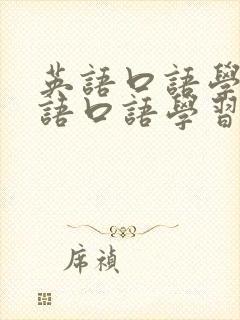 英語口語學
語口語學習
席禎